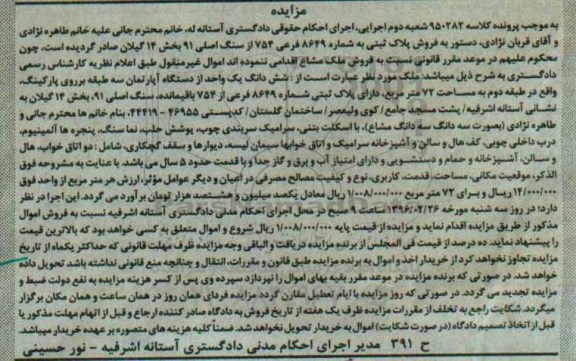 مزایده
به موجب پرونده کلاسه ۹۵۰۲۸۲ شعبه دوم اجرایی، اجرای احکام حقوقی دادگستری آستانه له، خانم محترم جانی علیه خانم طاهره نژادی و
آقای قربان نژادی، دستور به فروش پلاک ثبتی به شماره ۸۶۴۹ فرعی ۷۵۴ از سنگ اصلی ۹۱ بخش ۱۴ گیلان صادر گردیده است، چون
محکوم علیهم در موعد مقرر قانونی نسبت به فروش ملک مشاع اقدامی ننموده اند اموال غیرمنقول طبق اعلام نظریه کارشناس رسمی
دادگستری به شرح ذیل میباشد: ملک مورد نظر عبارت است از: شش دانگ یک واحد از دستگاه آپارتمان سه طبقه برروی پارکینگ،
واقع در طبقه دوم به مساحت ۷۲ متر مربع. دارای پلاک ثبتی شماره ۸۶۴۹ فرعی از ۷۵۴ باقیمانده، سنگ اصلی ۹۱، بخش ۱۴ گیلان به
نشانی آستانه اشرفیه/ پشت مسجد جامع/ کوی ولیعصر/ ساختمان گلستان/ کدپستی ۴۶۹۵۵ - ۴۴۴۱۹، بنام خانم ها محترم جانی و
طاهره نژادی (بصورت سه دانگ سه دانگ مشاع)، با اسکلت بتنی، سرامیک سربندی چوب، پوشش حلب، نما سنگ، پنجره ها آلمینیوم،
درب داخلی چوبی، کف هال و سالن و آشپزخانه سرامیک و اتاق خوابها سیمان لیسه، دیوارها و سقف گچکاری، شامل: دو اتاق خواب، هال
و سالن، آشپزخانه و حمام و دستشویی و دارای امتیاز آب و برق و گاز جدا و با قدمت حدود ۵ سال می باشد. با عنایت به مشروحه فوق
الذکر، موقعیت مکانی، مساحت، قدمت، کاربری، نوع و کیفیت مصالح مصرفی در اعیان و دیگر عوامل مؤثر، ارزش هر متر مربع از واحد فوق
۱۴/۰۰۰/۰۰۰ ریال و برای ۷۲ متر مربع ۱/۰۰۸/۰۰۰/۰۰۰ ریال معادل یکصد میلیون و هشتصد هزار تومان برآورد می گردد. این اجرا در نظر
دارد: در روز سه شنبه مورخه ۱۳۹۶/۰۲/۲۶ ساعت ۹ صبح در محل اجرای احکام مدنی دادگستری آستانه اشرفیه نسبت به فروش اموال
مذکور از طریق مزایده اقدام نماید و مزایده از قیمت پایه ۱/۰۰۸/۰۰۰/۰۰۰ ریال شروع و اموال متعلق به کسی خواهد بود که بالاترین قیمت
را پیشنهاد نماید. ده درصد از قیمت فی المجلس از برنده مزایده دریافت و الباقی وجه مزایده ظرف مهلت قانونی که حداکثر یکماه از تاریخ
مزایده تجاوز نخواهد کرد از خریدار اخذ و اموال به برنده مزایده طبق قانون و مقررات، انتقال و چنانچه منع قانونی نداشته باشد تحویل داده
خواهد شد. در صورتی که برنده مزایده در موعد مقرر بقیه بهای اموال را نپردازد سپرده وی پس از کسر هزینه مزایده به نفع دولت ضبط و
مزایده تجدید می گردد. در صورتی که روز مزایده با ایام تعطیل مقارن گردد مزایده فردای همان روز در همان ساعت و همان مکان برگزار
میگردد. شکایت راجع به تخلف از مقررات مزایده ظرف یک هفته از تاریخ فروش به دادگاه صادر کننده ارجاع و قبل از اتمام مهلت مذکور یا
قبل از اتخاذ تصمیم دادگاه (در صورت شکایت) اموال به خریدار تحویل نخواهد شد. ضمناً کلیه هزینه های متصوره بر عهده خریدار میباشد.
ح ۳۹۱ مدیر اجرای احکام مدنی دادگستری آستانه اشرفیه - نور حسینی